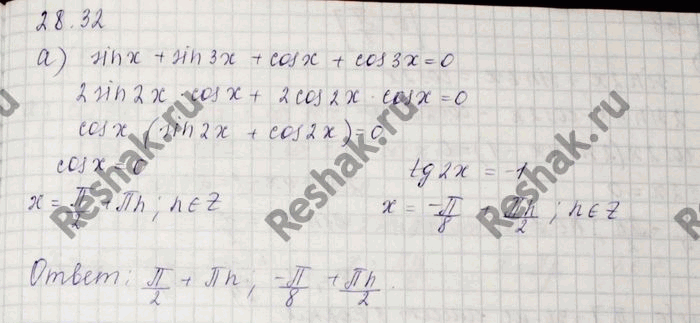 28.32
а) sinx + sin3x + cosx + cos3x = 0
2sin2x · cosx + 2cos2x · cosx = 0
cosx (sin2x + cos2x) = 0
cosx = 0 tg2x = -1
x = π/2 + πn; n∈Z x = -π/8 + πn/2; n∈Z
Ответ: π/2 + πn; -π/8 + πn/2.
Reshak.ru
Reshak.ru
Reshak.ru